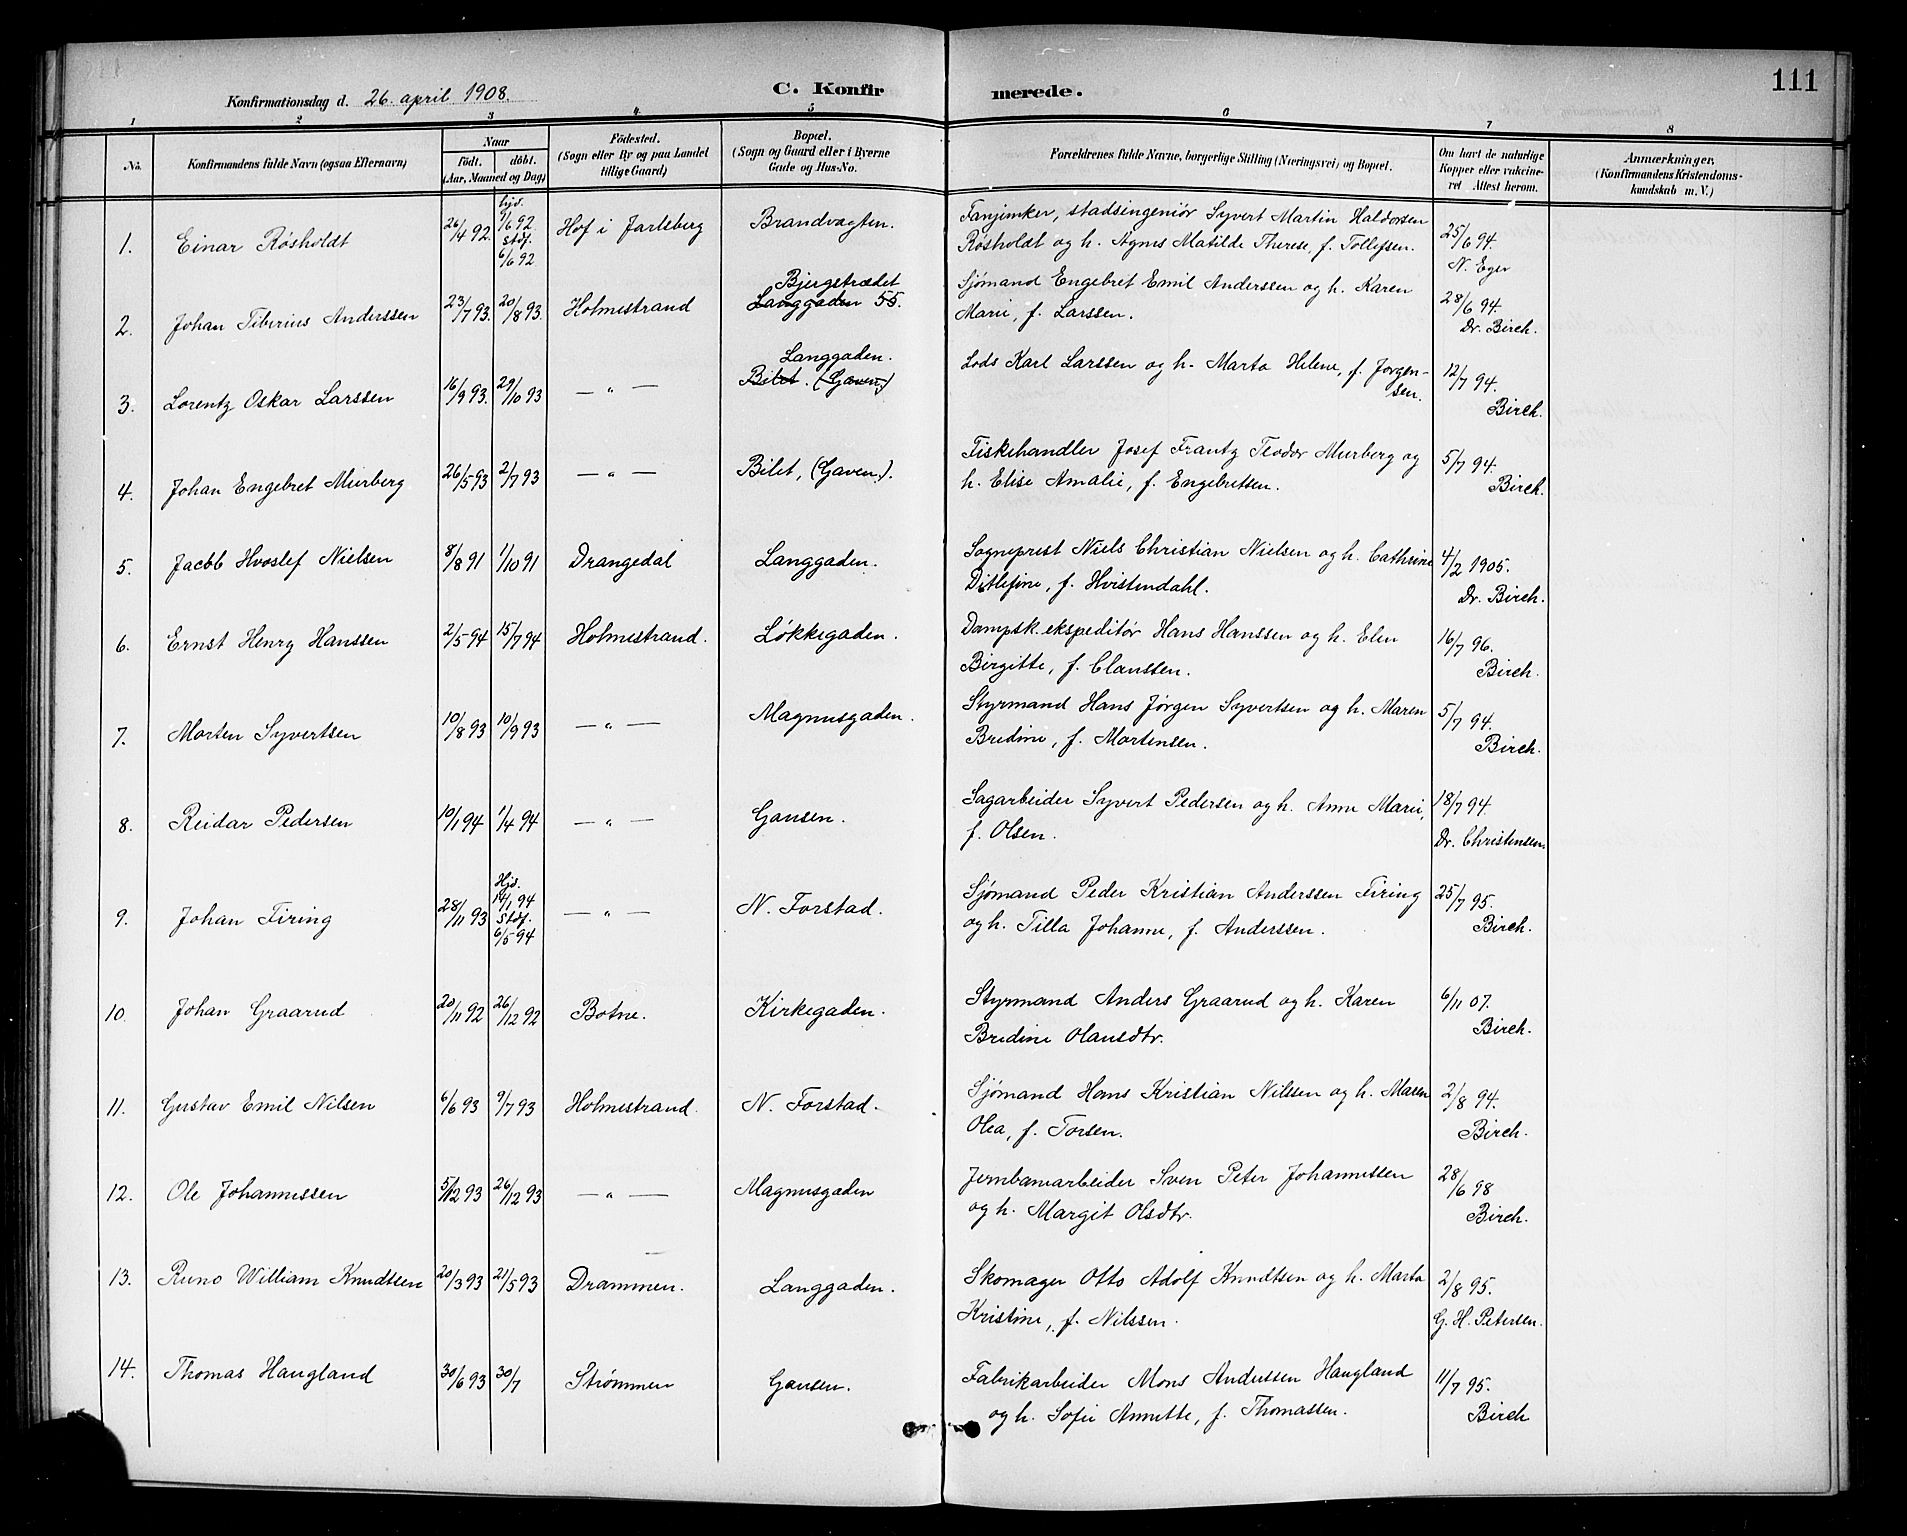 111
Konfirmationsdag d. 26. april 1908.
C. Konfir merede.
1 2 3 4 5 6 7 8
No.
Konfirmandens fulde Navn (ogsaa Efternavn)
Naar
födt. döbt.
(Aar, Maaned og Dag)
Födested.
(Sogn eller By og paa Landet
tillige Gaard)
Bopæl.
(Sogn og Gaard eller i Byerne
Gade og Hus-No.
Forældrenes fulde Navne, borgerlige Stilling (Næringsvei) og Bopæl.
Om havt de naturlige
Kopper eller vakcine-
ret Attest herom.
Anmærkninger.
(Konfirmandens Kristendoms-
kundskab m. V.)
1. Einar Røsholdt 26/4 92. hjd. 9/6 92 Stdf. 6/6 92 Hof i Jarlsberg Brandvagten. Fanjunker, stadsingeniør Syvert Martin Haldorsen
Røsholdt og h. Agnes Matilde Therese, f. Tollefsen. 25/6 94.
N. Eger
2. Johan Tiberius Anderssen 23/7 93. 20/8 93. Holmestrand Bjergstrædet
Langgaden 55. Sjømand Engebret Emil Anderssen og h. Karen
Marie, f. Larssen. 28/6 94.
Dr. Birch.
3. Lorentz Oskar Larssen 16/9 93. 29/10 93 — " — Langgaden.
Bilet. (Gaven.) Lods Karl Larssen og h. Marta Helene, f. Jørgen-
sen. 12/7 94.
Birch.
4. Johan Engebret Murberg 26/5 93 2/7 93 — " — Bilet, (Gaven.). Fiskehandler Josef Frantz Teodor Murberg og
h. Elise Amalie, f. Engebretsen. 5/7 94.
Birch.
5. Jacob Hvoslef Nielsen 8/8 91 1/10 91 Drangedal Langgaden. Sogneprest Niels Christian Nielsen og h. Cathrine
Ditlefine, f. Hvistendahl. 4/2 1905.
Dr. Birch.
6. Ernst Henry Hanssen 2/5 94 15/7 94 Holmestrand. Løkkegaden. Dampsk.ekspeditør Hans Hanssen og h. Elen
Birgitte, f. Clanssen. 16/7 96.
Birch.
7. Morten Syvertsen 10/8 93 10/9 93 — " — Magnusgaden. Styrmand Hans Jørgen Syvertsen og h. Maren
Bredine, f. Mortensen. 5/7 94.
Birch.
8. Reidar Pedersen 10/1 94 1/4 94 — " — Gausen. Sagarbeider Syvert Pedersen og h. Anne Marie,
f. Olsen. 18/7 94.
Dr. Christensen.
9. Johan Firing 28/11 93 Hjd. 14/1 94 Stdf. 6/5 94 — " — N. Forstad. Sjømand Peder Kristian Anderssen Firing
og h. Tilla Johanne, f. Anderssen. 25/7 95.
Birch.
10. Johan Graarud 20/11 92 26/12 92 Botne. Kirkegaden. Styrmand Anders Graarud og h. Karen
Bredine Olausdtr. 6/11 07.
Birch.
11. Gustav Emil Nilsen 6/6 93 9/7 93 Holmestrand. N. Forstad. Sjømand Hans Kristian Nilssen og h. Maren
Olea, f. Torsen. 2/8 94.
Birch.
12. Ole Johannessen 5/12 93 26/12 93 — " — Magnusgaden Jernbanearbeider Sven Peter Johannessen
og h. Margit Olsdtr. 28/6 98
Birch.
13. Runo William Knudtsen 20/3 93 21/5 93 Drammen. Langgaden. Skomager Otto Adolf Knudtsen og h. Marta
Kristine, f. Nilssen. 2/8 95.
G. H. Petersen.
14. Thomas Haugland 30/6 93 30/7 Strømmen Gausen. Fabrikarbeider Mons Anderssen Haugland
og h. Sofie Annette, f. Thomassen. 11/7 95.
Birch